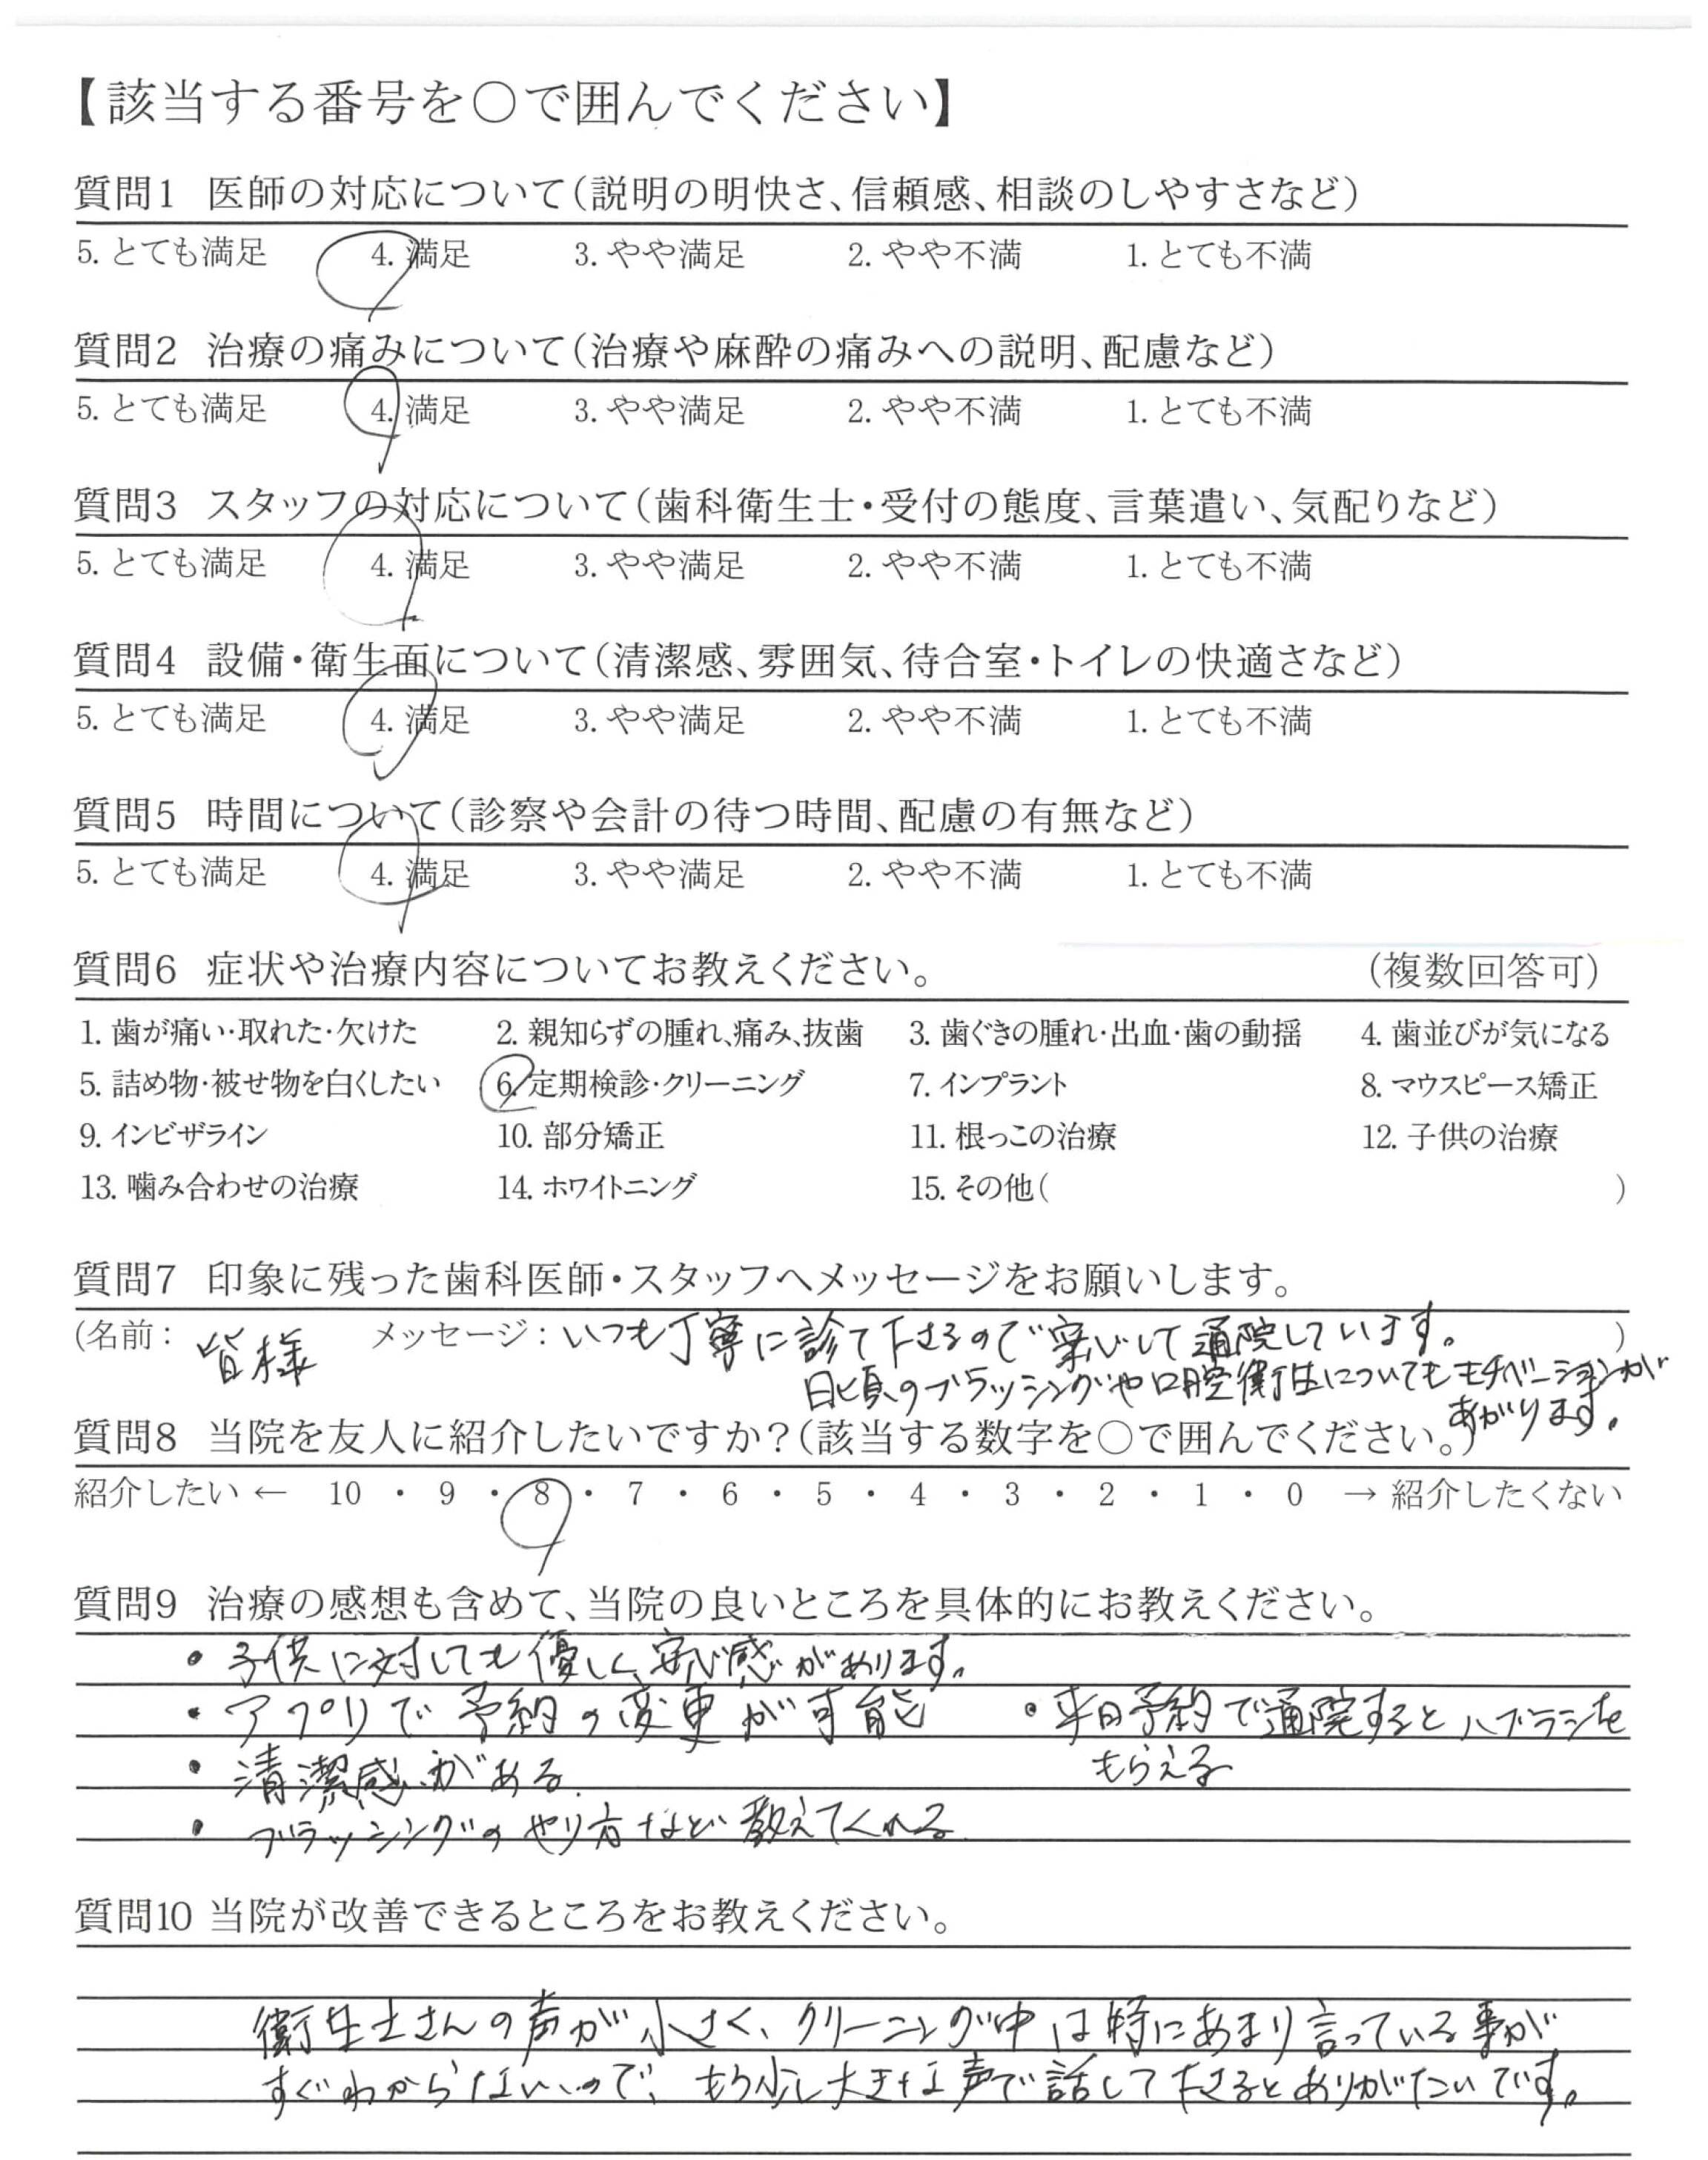 【該当する番号を○で囲んでください】
質問1 医師の対応について(説明の明快さ、信頼感、相談のしやすさなど)
5. とても満足 4. 満足 3. やや満足 2. やや不満 1. とても不満
質問2 治療の痛みについて(治療や麻酔の痛みへの説明、配慮など)
5. とても満足 4. 満足 3. やや満足 2. やや不満 1. とても不満
質問3 スタッフの対応について(歯科衛生士・受付の態度、言葉遣い、気配りなど)
5. とても満足 4. 満足 3. やや満足 2. やや不満 1. とても不満
質問4 設備・衛生面について(清潔感、雰囲気、待合室・トイレの快適さなど)
5. とても満足 4. 満足 3. やや満足 2. やや不満 1. とても不満
質問5 時間について(診察や会計の待つ時間、配慮の有無など)
5. とても満足 4. 満足 3. やや満足 2. やや不満 1. とても不満
質問6 症状や治療内容についてお教えください。 (複数回答可)
1. 歯が痛い・取れた・欠けた 2. 親知らずの腫れ、痛み、抜歯 3. 歯ぐきの腫れ・出血・歯の動揺 4. 歯並びが気になる
5. 詰め物・被せ物を白くしたい 6. 定期検診・クリーニング 7. インプラント 8. マウスピース矯正
9. インビザライン 10. 部分矯正 11. 根っこの治療 12. 子供の治療
13. 噛み合わせの治療 14. ホワイトニング 15. その他( )
質問7 印象に残った歯科医師・スタッフへメッセージをお願いします。
(名前: 皆様 メッセージ: いつも丁寧に診て下さるので安心して通院しています。 )
日頃のブラッシングや口腔衛生についてもモチベーションが
あがります。
質問8 当院を友人に紹介したいですか?(該当する数字を○で囲んでください。)
紹介したい ← 10 ・ 9 ・ 8 ・ 7 ・ 6 ・ 5 ・ 4 ・ 3 ・ 2 ・ 1 ・ 0 → 紹介したくない
質問9 治療の感想も含めて、当院の良いところを具体的にお教えください。
・子供に対しても優しく安心感があります。
・アプリで予約の変更が可能 ・平日予約で通院するとハブラシを
もらえる
・清潔感がある.
・ブラッシングのやり方など教えてくれる
質問10 当院が改善できるところをお教えください。
衛生士さんの声が小さく、クリーニング中は特にあまり言っている事が
すぐわからないので、もう少し大きな声で話して下さるとありがたいです。